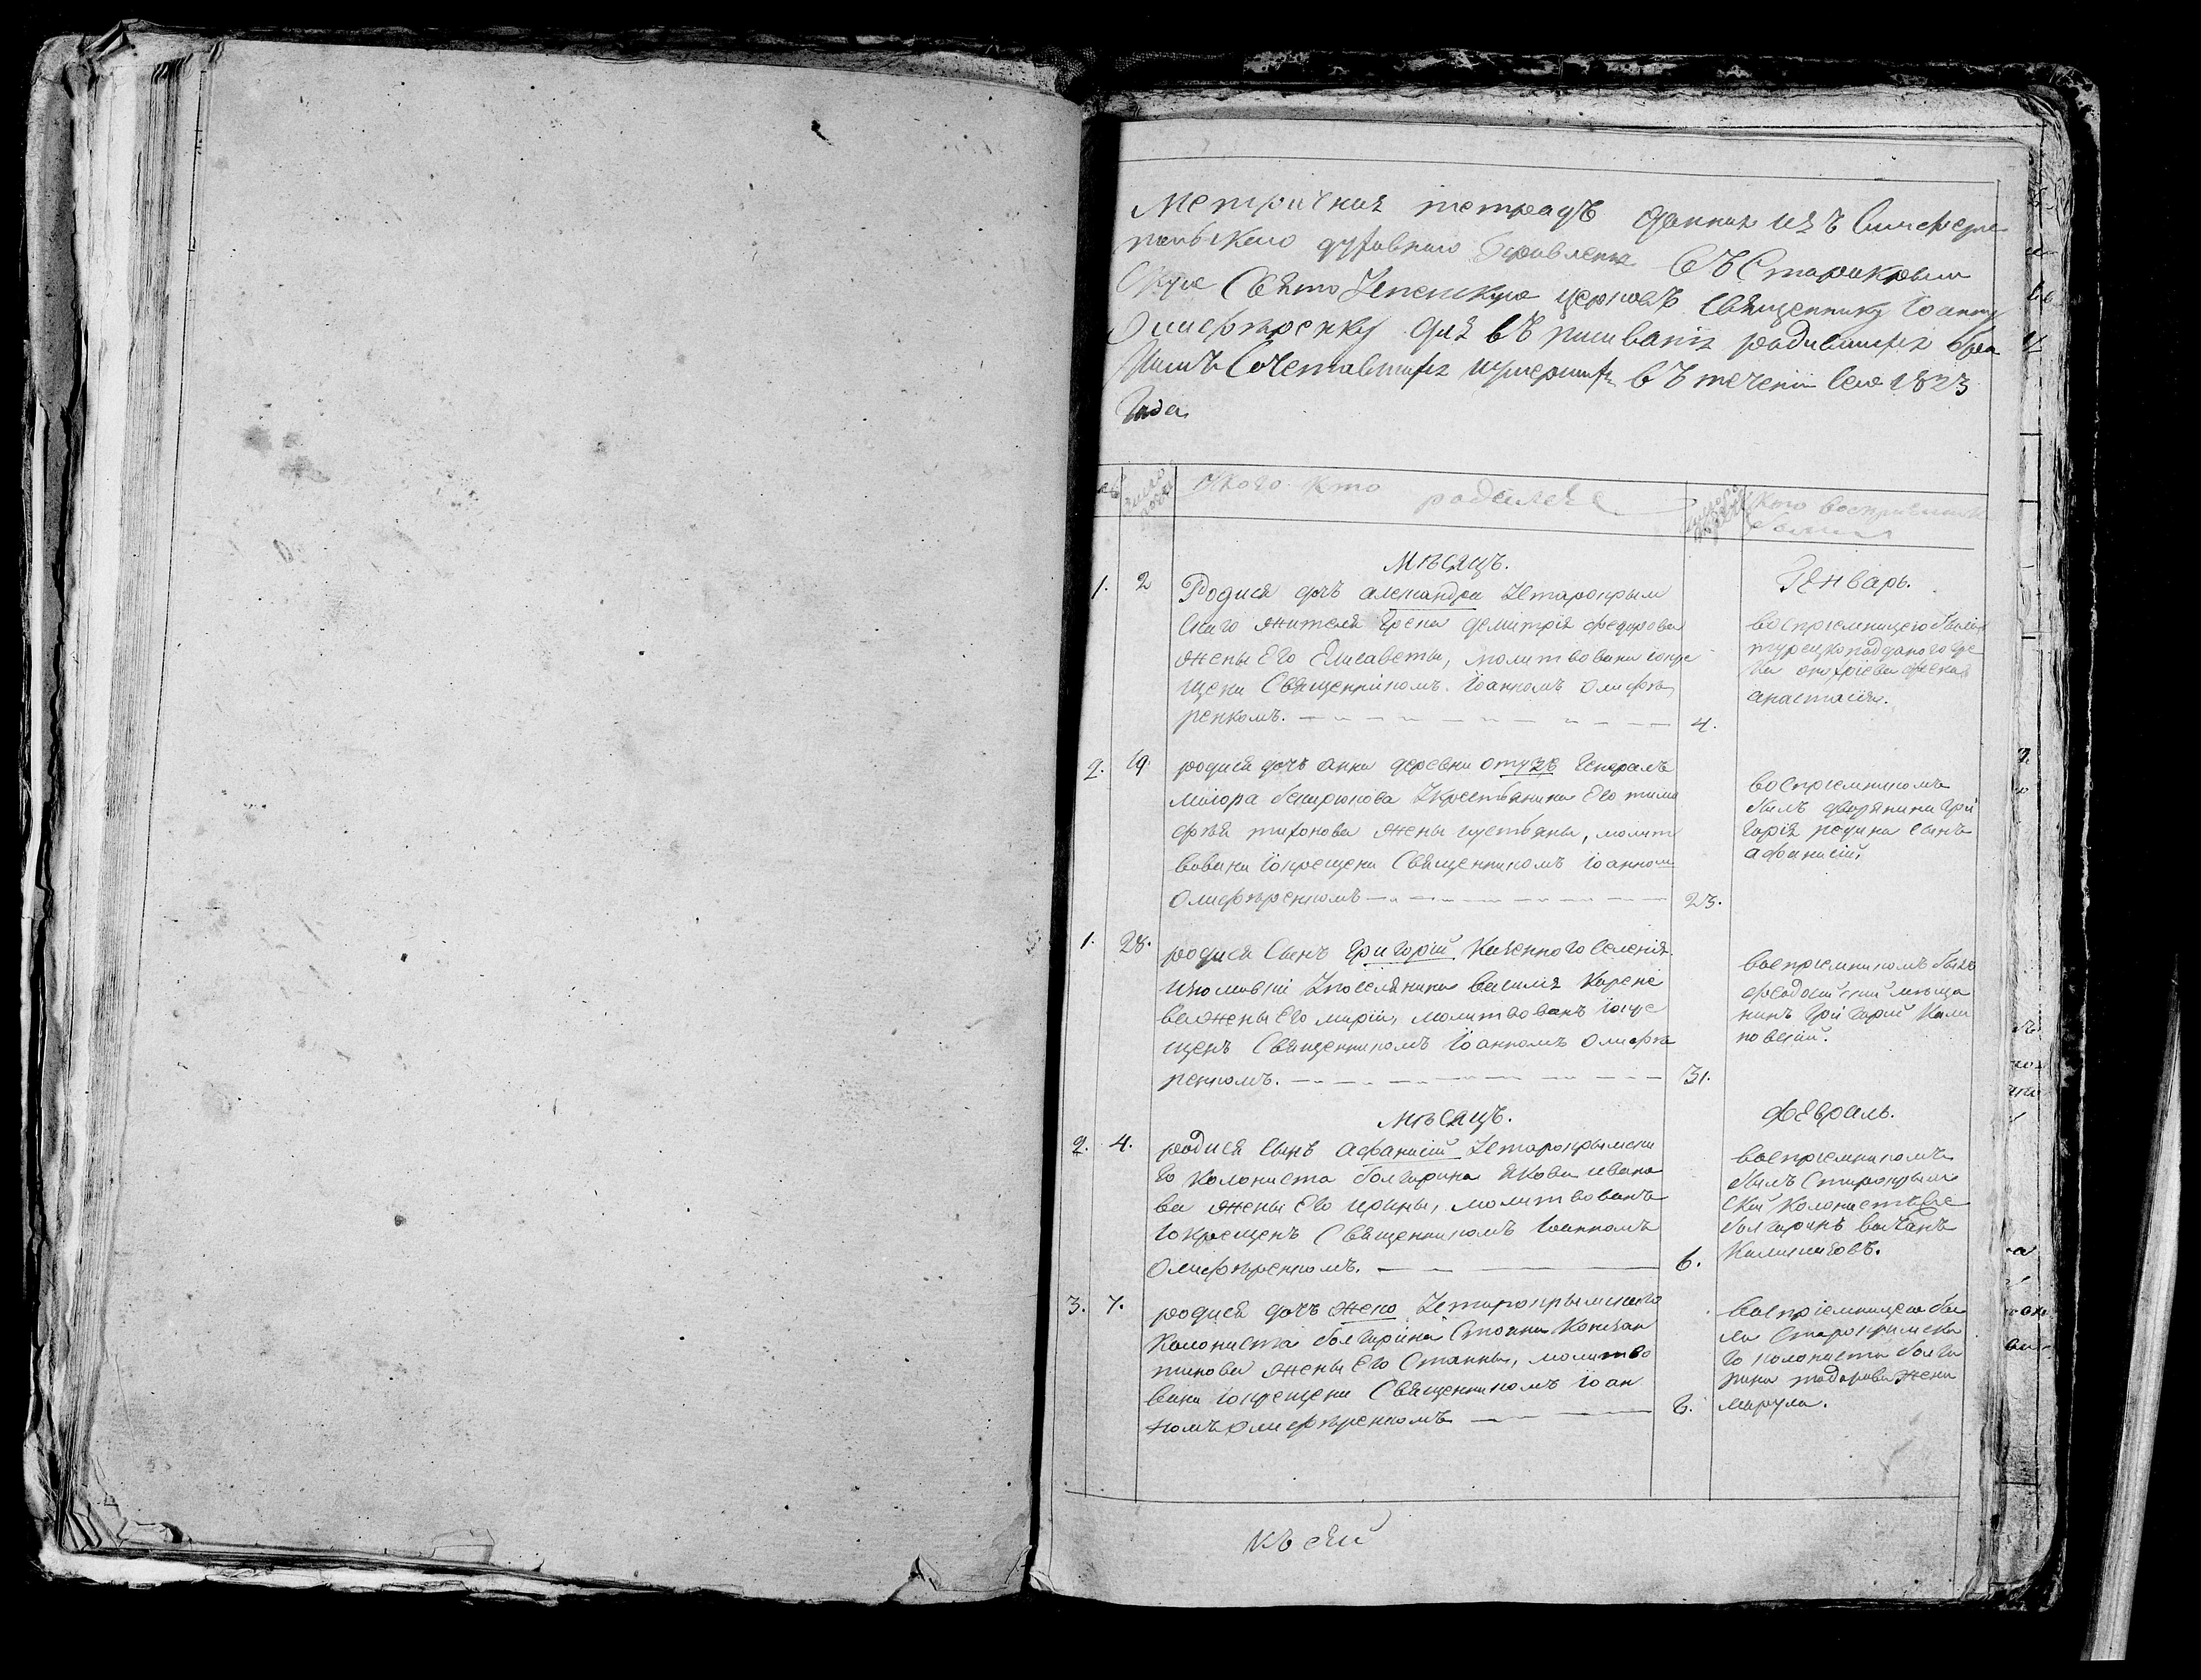 Метричная тетрадъ данная изъ Симферо
польского духовного Правления въ Старокрым
скую Свято Успенскую церковъ священнику Iоанну
Олифѣренку для въписыванія родившихся бра
комъ Сочетавшихся иумершихъ въ теченіи сего 1823
Года
Укого кто родился
Кто восприемники
были
Мѣсяцъ.
Генварь.
1. 2 Родися дочъ александра Устарокрым
скаго жителя грека димитрія федорова
жены Его Елисаветы, молитвована iокре
щена Священникомъ Iоанномъ олифѣ
ренкомъ. 4.
воспріемницею была
турецкоподданого гре
ка жена
анастасія.
2. 19. родися дочъ анна деревни отузъ Генералъ
маiора Укрестьянина Его тимо
фѣя тихонова жены устьяны, молит
вована iокрещена Священникомъ Iоанном
Олифѣренкомъ 23.
воспріемникомъ
былъ дворянина гри
горія сынъ
афанасій.
1. 28. родися Сынъ григорій Казенного селенія
Изюмовки Упоселянина василія
ва жены Его маріи, молитвованъ iокре
щенъ Священникомъ Iоанномъ олифѣ
ренкомъ. 31.
воспріемникомъ былъ
феодосійскій мѣща
нинъ григорий Кали
новскій.
мѣсяцъ.
февраль.
2. 4. родися Сынъ афанасій Устарокрымска
го колониста болгарина якова ивано
ва жены Его ирины, молитвованъ
iокрещенъ Священникомъ Iоанномъ
Олифѣренкомъ. 6.
воспріемникомъ
былъ Старокрым
ской колонистъ
болгаринъ
3. 7. родися дочъ Устарокрымскаго
колониста болгарина Стояна Констан
тинова жены Его Станны, молитво
вана iокрещена Священникомъ iоан
номъ олифѣренкомъ 8.
воспріемницею бы
ла Старокримска
го колониста болга
рина тодорова жена
марула.
къ сей